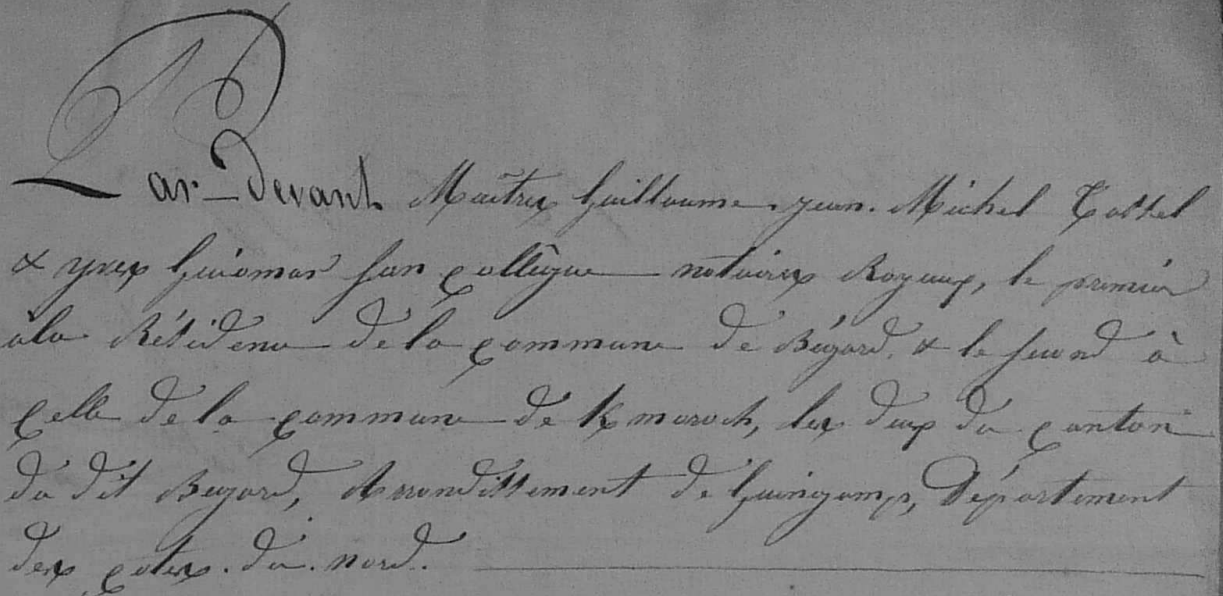 Par-Devant Maîtres Guillaume-jean-Michel
& yves Guiomar son collègue notaires Royaux, le premier
à la Résidence de la commune de Bégard, & le second à
celle de la commune de Kmoroch, les deux du canton
du dit Begard, Arrondissement de Guingamp, Département
des cotes. du. nord.